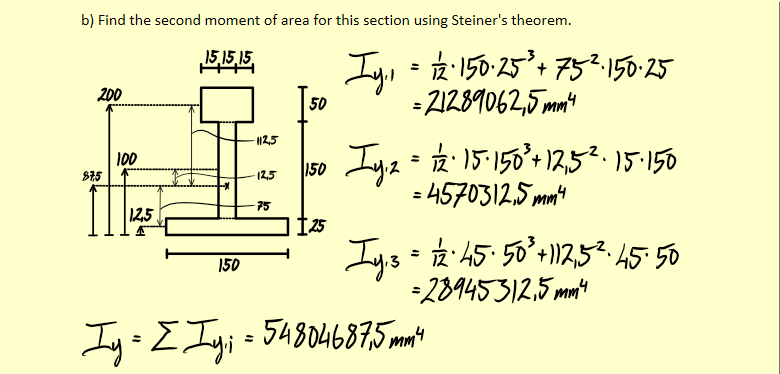 b) Find the second moment of area for this section using Steiner's theorem.
15 15 15
200
50
112,5
100
150
87,5
12,5
75
12,5
25
150
Iy,1 = 1/12 · 150 · 25³ + 75² · 150 · 25
= 21289062,5 mm⁴
Iy,2 = 1/12 · 15 · 150³ + 12,5² · 15 · 150
= 4570312,5 mm⁴
Iy,3 = 1/12 · 45 · 50³ + 112,5² · 45 · 50
= 28945312,5 mm⁴
Iy = Σ Iy,i = 54804687,5 mm⁴